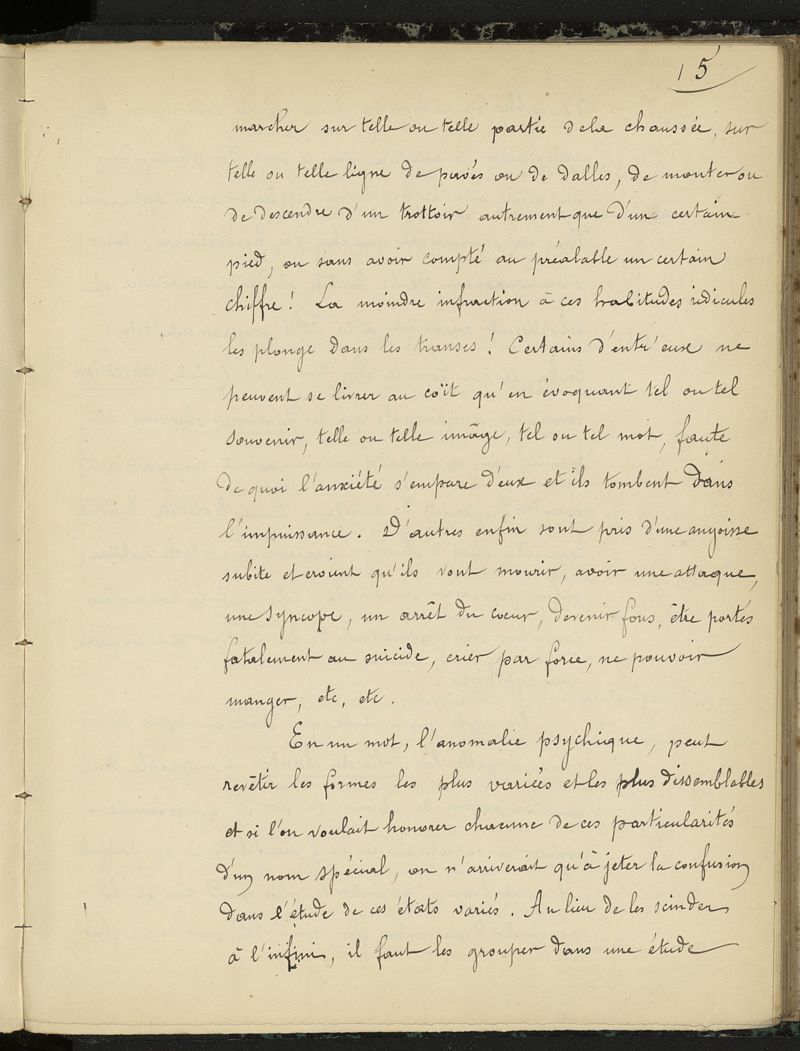 15
marcher sur telle ou telle partie de la chaussée, sur
telle ou telle ligne de pavés ou de dalles, de monter ou
de descendre d'un trottoir autrement que d'un certain
pied, ou sans avoir compté au préalable un certain
chiffre! La moindre infraction à ces habitudes ridicules
les plonge dans les transes! Certains d'entr'eux ne
peuvent se livrer au coït qu'en évoquant tel ou tel
souvenir, telle ou telle image, tel ou tel mot, faute
de quoi l'anxiété s'empare d'eux et ils tombent dans
l'impuissance. D'autres enfin sont pris d'une angoisse
subite et croient qu'ils vont mourir, avoir une attaque,
une syncope, un arrêt du coeur, devenir fous, être portés
fatalement au suicide, crier par force, ne pouvoir
manger, etc, etc.
En un mot, l'anomalie psychique, peut
revêtir les formes les plus variées et les plus dissemblables
et si l'on voulait honorer chacune de ces particularités
d'un nom spécial, on n'arriverait qu'à jeter la confusion
dans l'étude de ces états variés. Au lieu de les scinder
à l'infini, il faut les grouper dans une étude